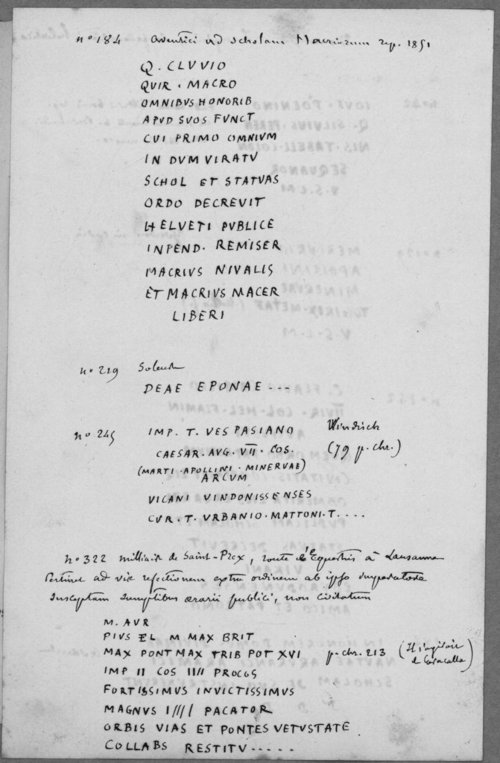 nº 184 Aventici ad scholam Macrianam rep. 1851
Q. CLVVIO
QUIR · MACRO
OMNIBVS HONORIB
APVD SVOS FVNCT
CVI PRIMO OMNIVM
IN DVM VIRATV
SCHOL ET STATVAS
ORDO DECREVIT
HELVETI PVBLICE
INPEND. REMISER
MACRIVS NIVALIS
ET MACRIVS MACER
LIBERI
nº 219 Soleure
DEAE EPONAE ...
nº 245 IMP. T. VESPASIANO Windisch
CAESAR. AVG. VII. COS. (79 p. chr.)
(MARTI · APOLLINI · MINERVAE)
ARCVM
VICANI VINDONISSENSES
CVR. T. VRBANIO · MATTONI · T. ....
nº 322 milliaire de Saint-Prex, route d'Equestris à Lausanne
Pertinet ad viae refectionem extra ordinem ab ipso imperatore
susceptam sumptibus aerarii publici, non civitatum
M. AVR
PIVS EL M MAX BRIT
MAX PONT MAX TRIB POT XVI p. chr. 213 (Il s'agit de Caracalla)
IMP II COS IIII PROCOS
FORTISSIMVS INVICTISSIMVS
MAGNVS I//// PACATOR
ORBIS VIAS ET PONTES VETVSTATE
COLLABS RESTITV .....